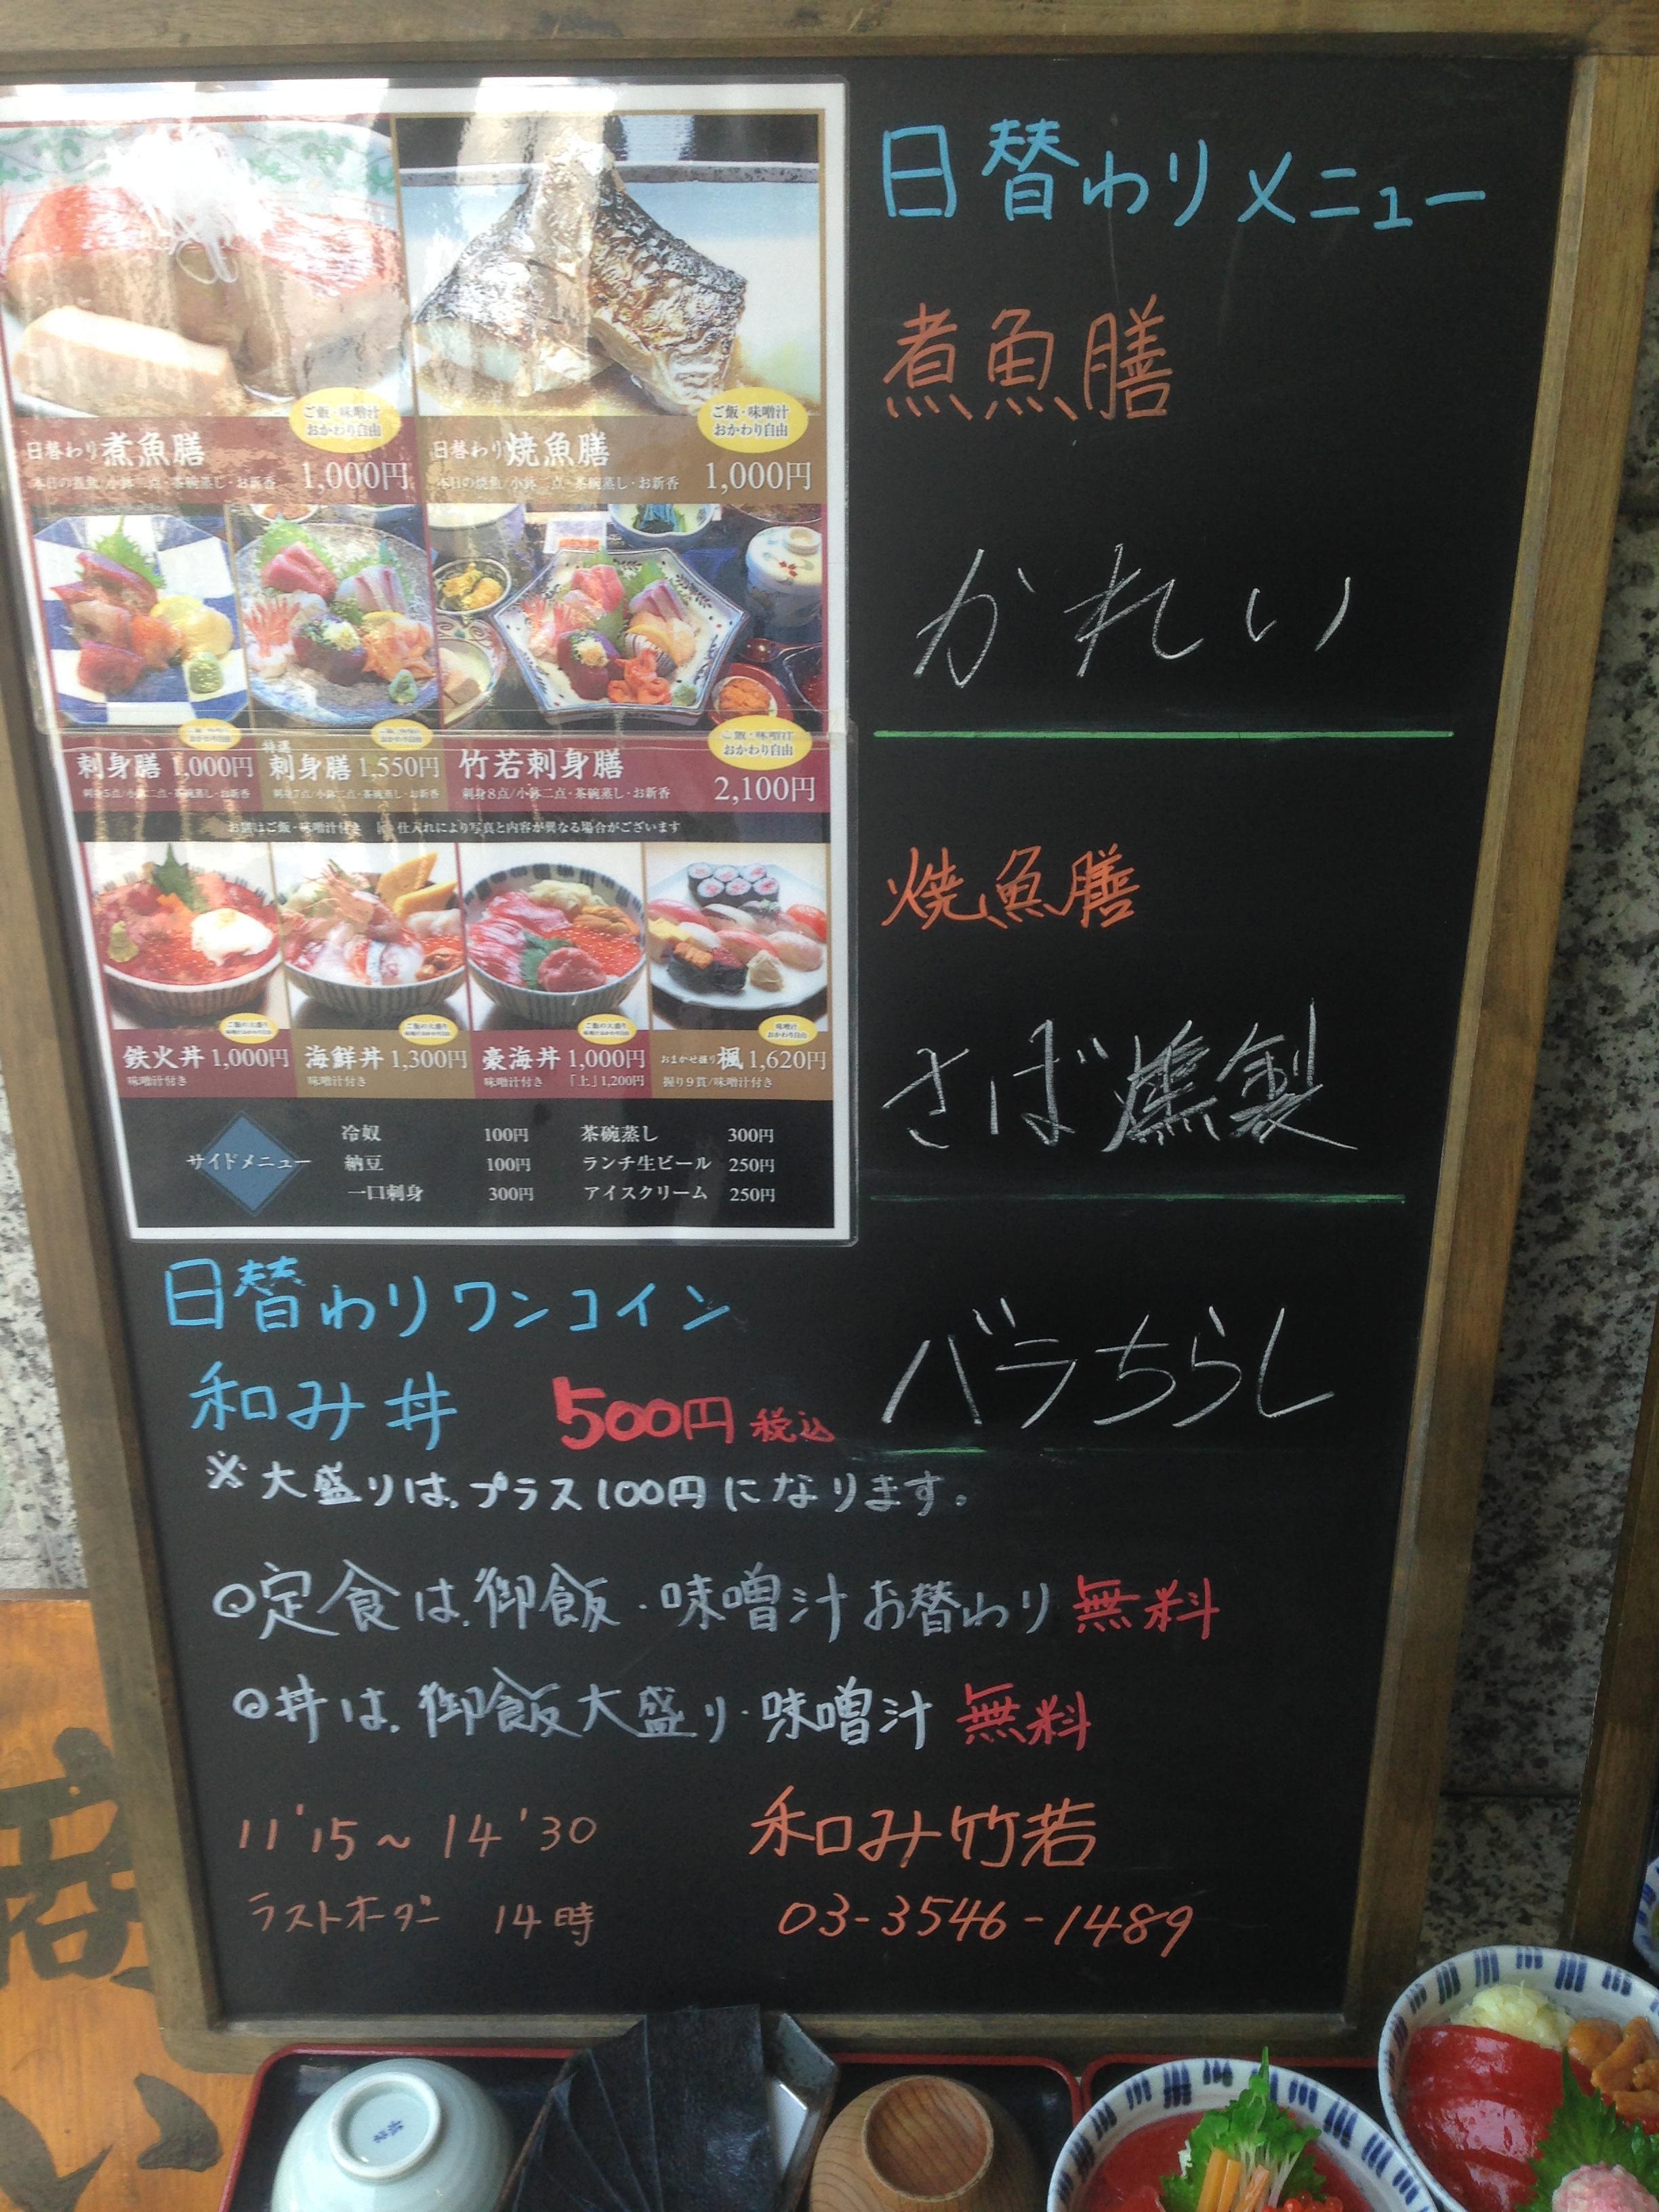 日替わり煮魚膳
ご飯・味噌汁
おかわり自由
本日の煮魚/小鉢二点・茶碗蒸し・お新香
1,000円
日替わり焼魚膳
ご飯・味噌汁
おかわり自由
本日の焼魚/小鉢二点・茶碗蒸し・お新香
1,000円
刺身膳 1,000円
刺身5点/小鉢二点・茶碗蒸し・お新香
特選
刺身膳 1,550円
刺身7点/小鉢二点・茶碗蒸し・お新香
竹若刺身膳
ご飯・味噌汁
おかわり自由
刺身8点/小鉢二点・茶碗蒸し・お新香
2,100円
お膳はご飯・味噌汁付き
仕入れにより写真と内容が異なる場合がございます
ご飯の大盛り
味噌汁おかわり自由
鉄火丼 1,000円
味噌汁付き
ご飯の大盛り
味噌汁おかわり自由
海鮮丼 1,300円
味噌汁付き
ご飯の大盛り
味噌汁おかわり自由
豪海丼 1,000円
味噌汁付き 「上」1,200円
味噌汁
おかわり自由
おまかせ握り 楓 1,620円
握り9貫/味噌汁付き
サイドメニュー
冷奴 100円
納豆 100円
一口刺身 300円
茶碗蒸し 300円
ランチ生ビール 250円
アイスクリーム 250円
日替わりメニュー
煮魚膳
かれい
焼魚膳
さば燻製
日替わりワンコイン
和み丼 500円 税込
バラちらし
※大盛りは、プラス100円になります。
◎定食は、御飯・味噌汁お替わり無料
◎丼は、御飯大盛り・味噌汁無料
11'15～14'30
ラストオーダー 14時
和み竹若
03-3546-1489